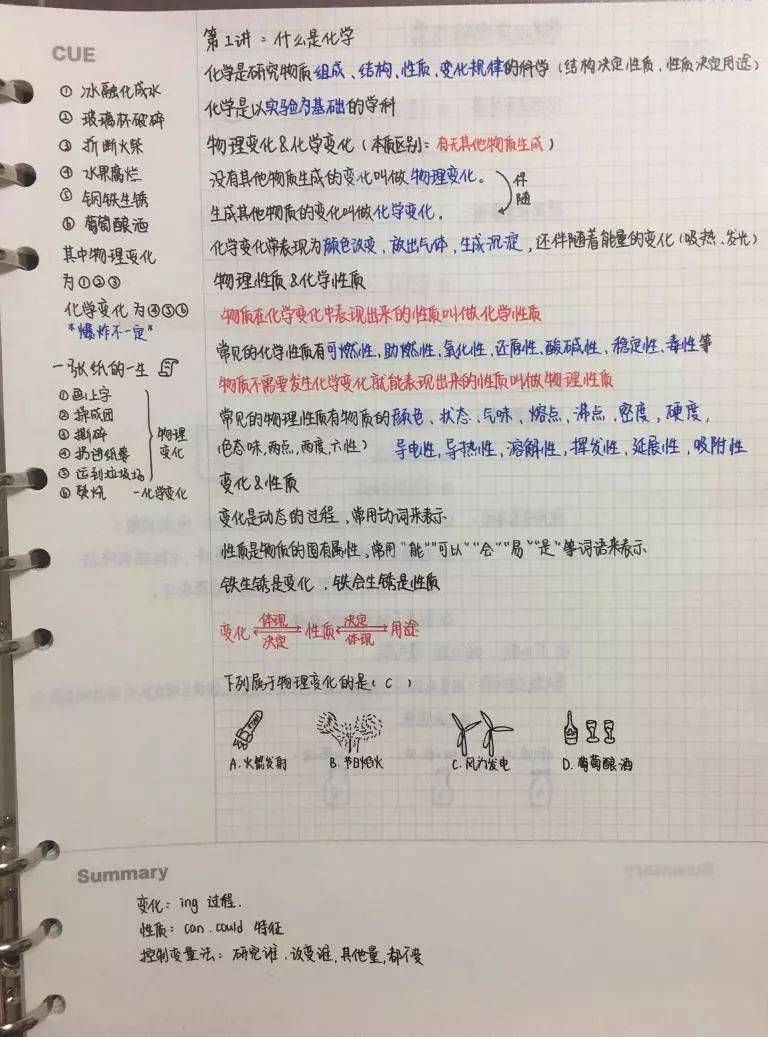 CUE
① 冰融化成水
② 玻璃杯破碎
③ 折断火柴
④ 水果腐烂
⑤ 钢铁生锈
⑥ 葡萄酿酒
其中物理变化
为①②③
化学变化为④⑤⑥
*爆炸不一定*
一张纸的一生
①画上字
②揉成团
③撕碎
④扔进纸篓
⑤运到垃圾场
物理
变化
⑥焚烧 —化学变化
第1讲：什么是化学
化学是研究物质组成、结构、性质、变化规律的科学（结构决定性质，性质决定用途）
化学是以实验为基础的学科
物理变化&化学变化（本质区别：有无其他物质生成）
没有其他物质生成的变化叫做物理变化。
伴
随
生成其他物质的变化叫做化学变化。
化学变化常表现为颜色改变，放出气体，生成沉淀，还伴随着能量的变化（吸热、发光）
物理性质&化学性质
物质在化学变化中表现出来的性质叫做化学性质
常见的化学性质有可燃性，助燃性、氧化性、还原性、酸碱性、稳定性、毒性等
物质不需要发生化学变化就能表现出来的性质叫做物理性质
常见的物理性质有物质的颜色、状态、气味、熔点、沸点、密度，硬度，
（色态味，两点，两度，六性） 导电性，导热性，溶解性，挥发性，延展性，吸附性
变化&性质
变化是动态的过程，常用动词来表示
性质是物质的固有属性，常用"能""可以""会""易""是"等词语来表示
铁生锈是变化，铁会生锈是性质
变化 体现 决定 性质 决定 体现 用途
下列属于物理变化的是（ C ）
A. 火箭发射 B. 节日焰火 C. 风力发电 D. 葡萄酿酒
Summary
变化：ing 过程.
性质：can. could 特征
控制变量法：研究谁，改变谁，其他量，都不变